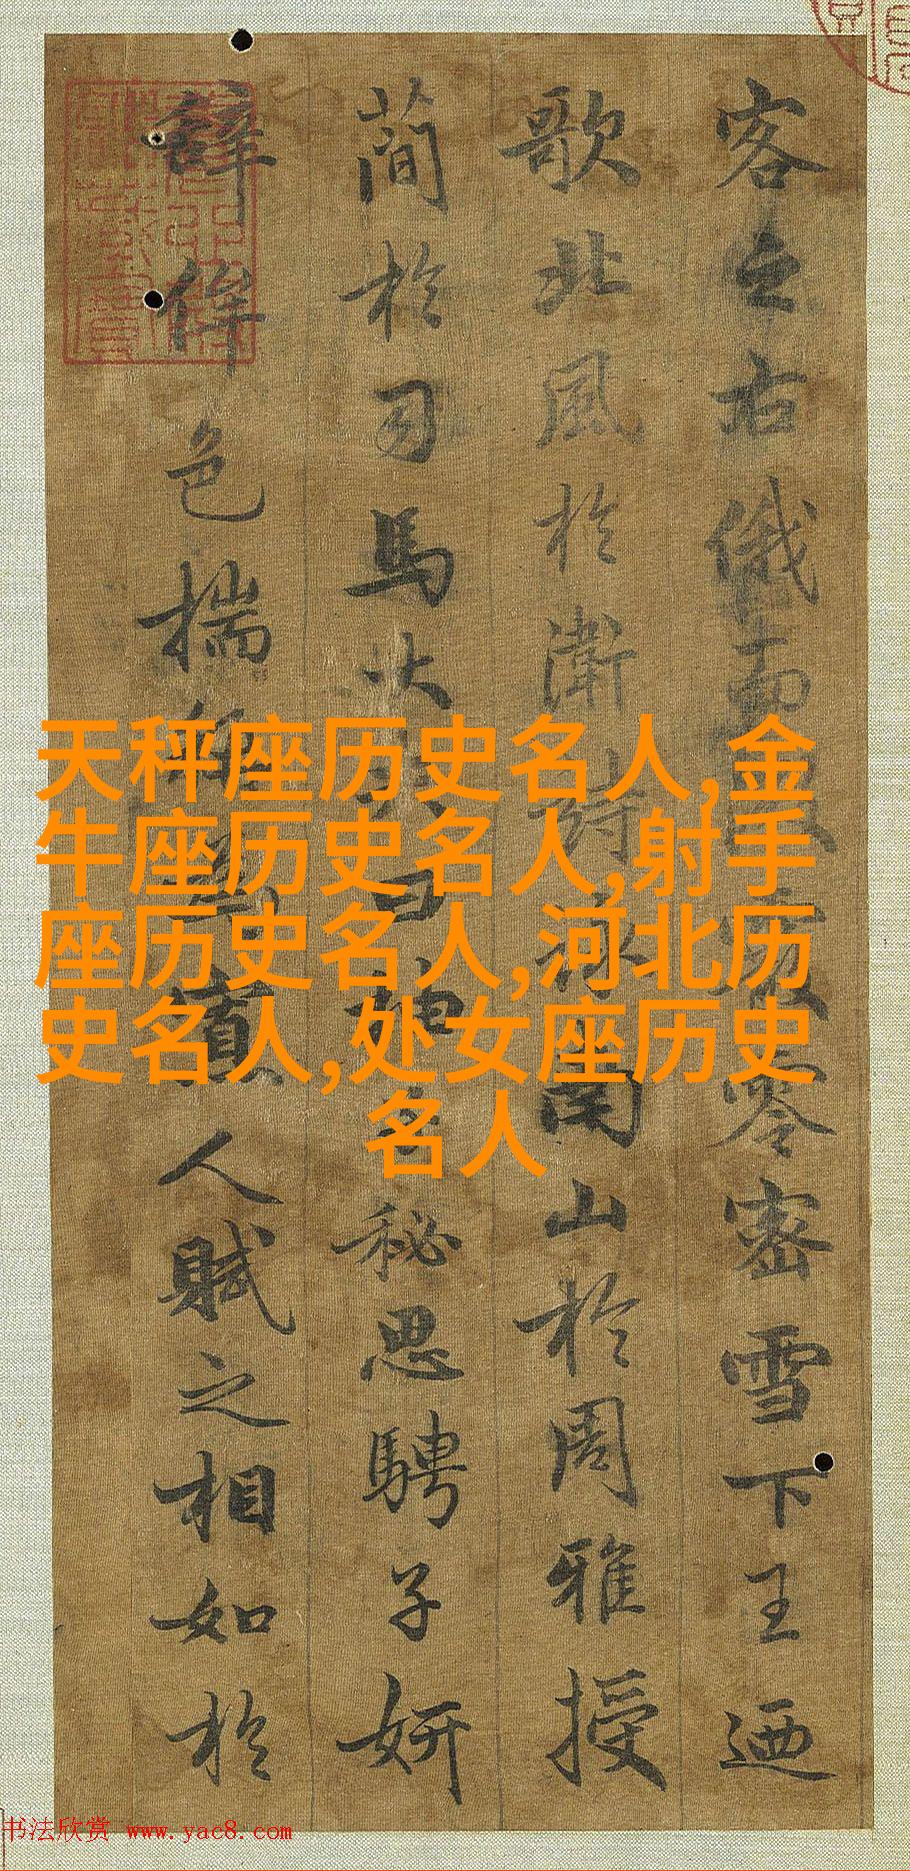 客之右俄而微霰零密雪下王迺
歌北風於衛詩詠南山於周雅授
簡於司馬大夫曰抽子秘思騁子妍
辭侔色揣稱為寡人賦之相如於
天秤座历史名人,金
牛座历史名人,射手
座历史名人,河北历
史名人,处女座历史
名人
书法欣赏 www.yac8.com